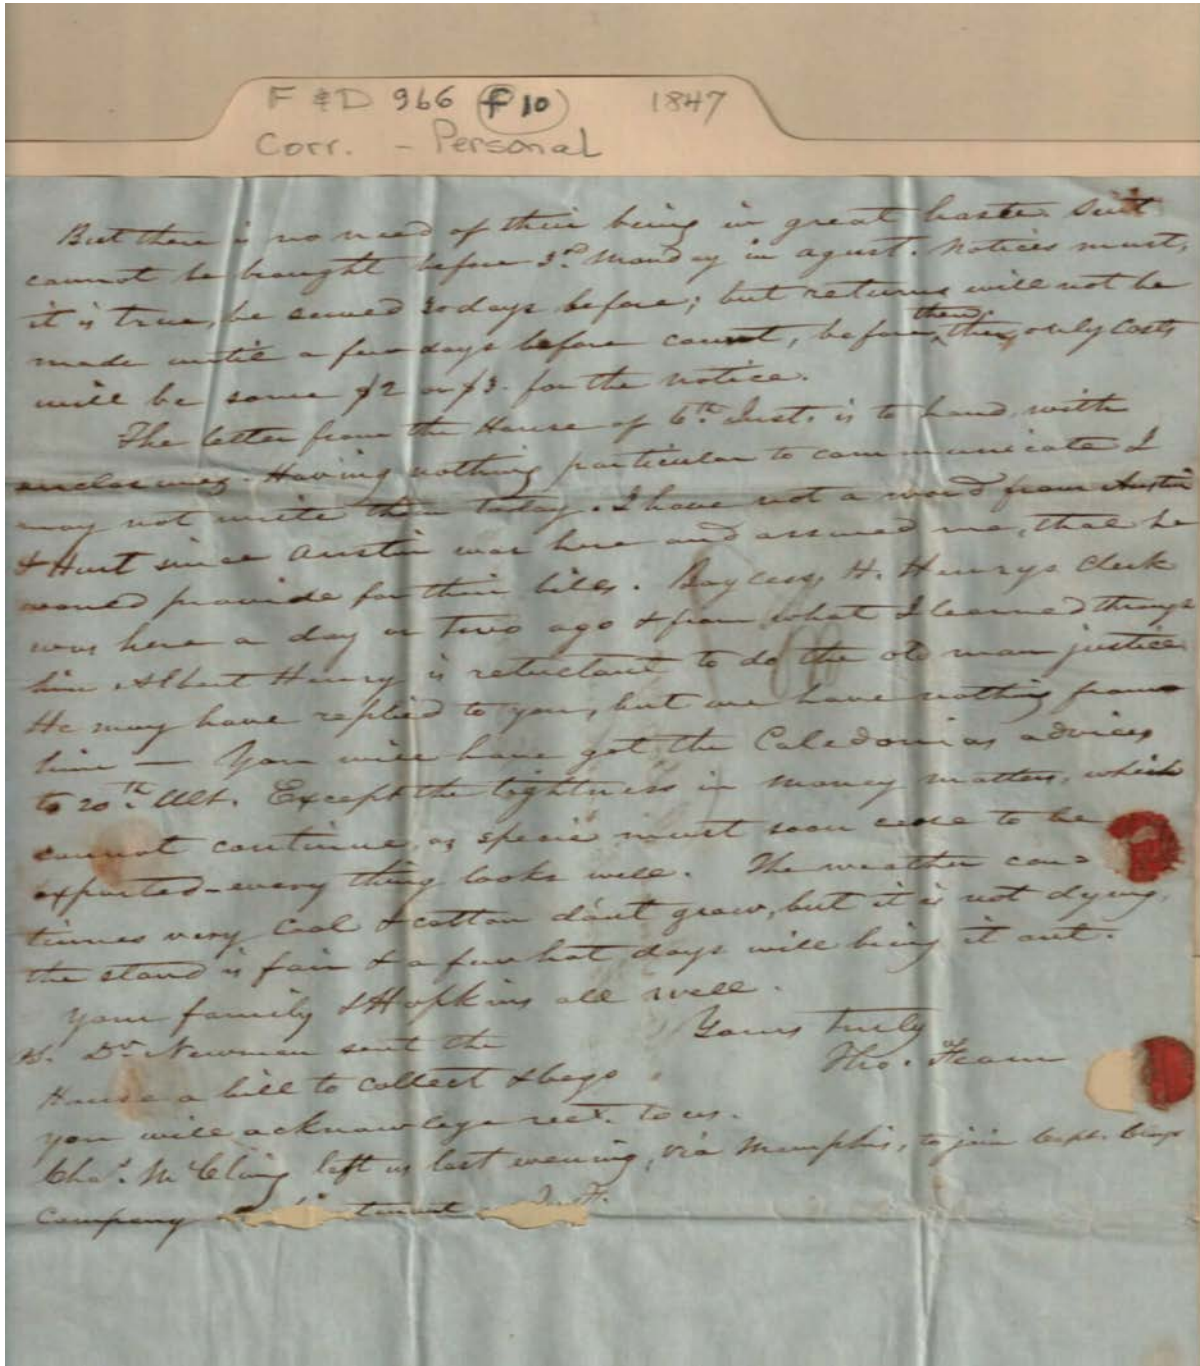 F & D 966 F10 1847
Corr. - Personal
But there is no need of their being in great haste. Suit
cannot be brought before 3rd Monday in agust. Notices must,
it is true, be served 30 days before; but returns will not be
made until a few days before court, before then, they only costs
will be some $2 or $3. for the notice.
The letter from the House of 6th Inst. is to hand with
enclosures. Having nothing particular to communicate I
may not write them today. I have not a word from Austin
& Hurt since Austin was here and assured me, that he
would provide for their bills. Bayless, H. Henrys Clerk
was here a day or two ago & from what I learned through
him Albert Henry is reluctant to do the old man justice
He may have replied to you, but we have nothing from
him — You will have got the Caledonias advices
to 20th Ult. Except the tightness in money matters, which
cannot continue, as specie must soon cease to be
exported - every thing looks well. The weather con=
tinues very Cool & cotton dont grow, but it is not dying,
the stand is fair & a few hot days will bring it out.
Your family & Hopkins all well.
Yours truly
Tho. Fearn
Dr. Newman sent the
House a bill to Collect & begs
you will acknowlege rect. to us.
Chas. McClung left us last evening, via Memphis, to join Capt.
Company